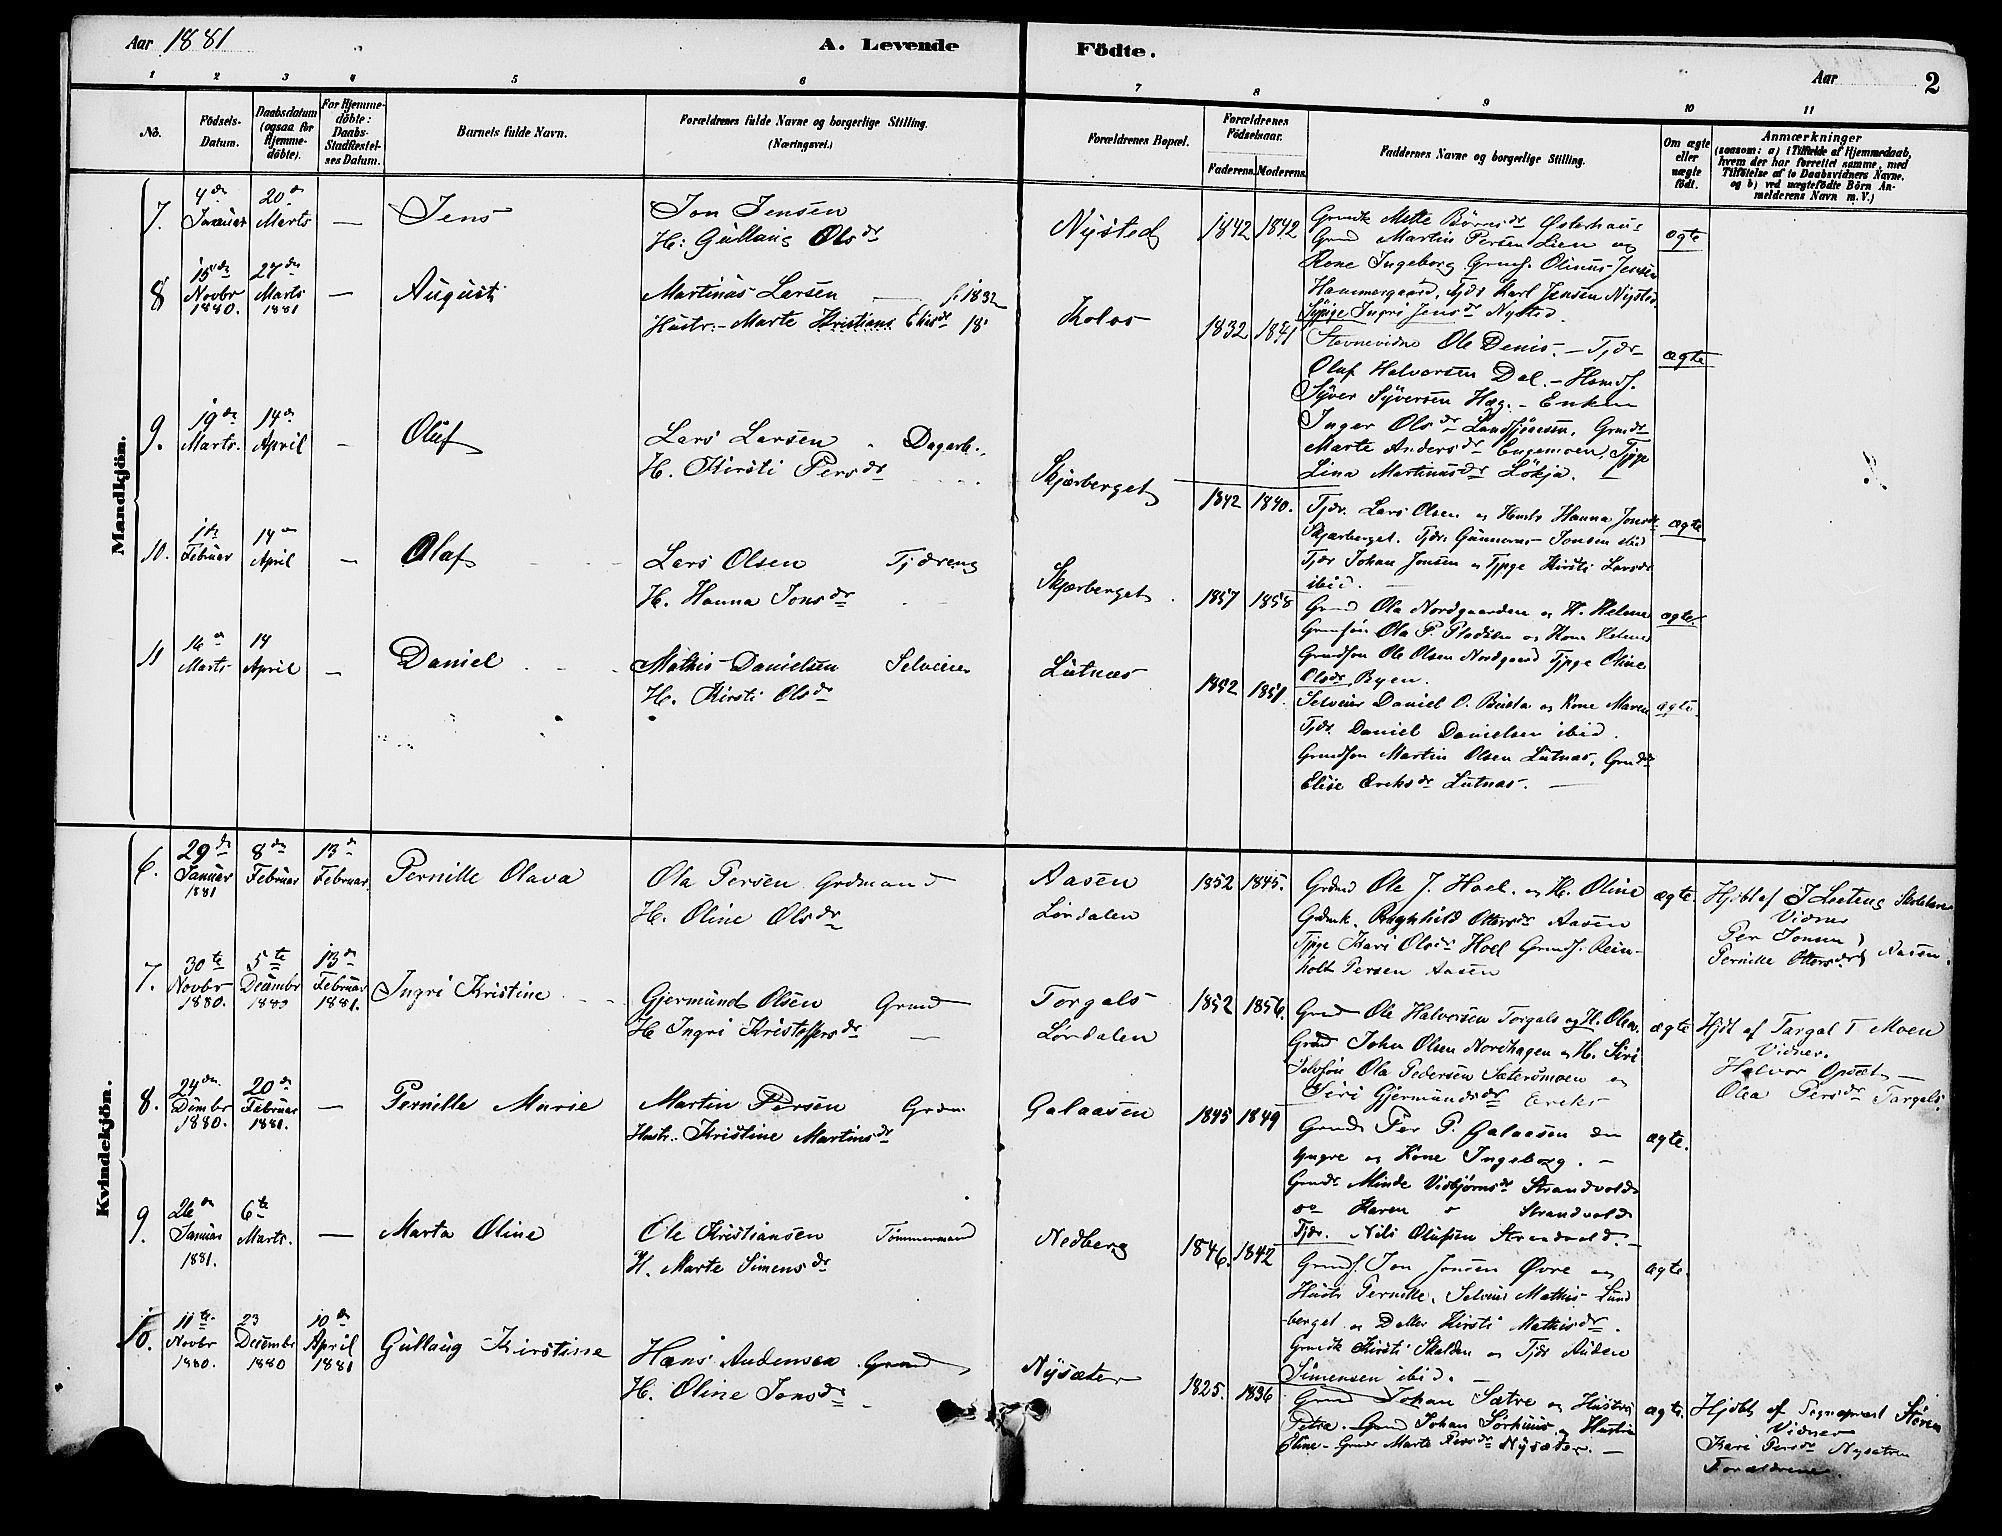 Aar 1881
A. Levende Födte.
Aar 2
1 2 3 4 5 6 7 8 9 10 11
No.
Födsels-Datum.
Daabsdatum (ogsaa for Hjemme-döbte).
For Hjemme-döbte: Daabs-Stadfæstel-ses Datum.
Barnets fulde Navn.
Forældrenes fulde Navne og borgerlige Stilling.
(Næringsvei.)
Forældrenes Bopæl.
Forældrenes Födselsaar.
Faderens. Moderens.
Faddernes Navne og borgerlige Stilling.
Om ægte eller uægte födt.
Anmærkninger
(saasom: a) i Tilfælde af Hjemmedaab, hvem der har forrettet samme, med Tilföielse af to Daabsvidners Navne, og b) ved uægtefödte Börn Anmelderens Navn m. V.)
Mandkjön.
7. 4de Januar 20de Marts — Jens
Jon Jensen
H: Gullaug Olsdr
Nysted 1842 1842
Grmdk Mette Börresdr Österhaus
Grmd Martin Persen Lien og
Kone Ingeborg. Grmds. Olinus Jensen
Hammergaard, Tjdr Karl Jensen Nysted
Tjpige Ingri Jensdr Nysted.
ægte
8 15de Novbr 1880. 27de Marts 1881 — August
Martinus Larsen f. 1832
Hustr. Marte Kristians Eliasdr 18
Kolos 1832 1841
Stevnevidne Ole Denis. — Tjdr
Olaf Halvorsen Dal. — Hamds.
Syver Syversen Hæg. — Enken
Inger Olsdr Landsjöaasen, Grmdr
Marte Andersdr Engemoen, Tjpge
Lina Martinusdr Lökja.
ægte
9. 19de Marts. 14de April — Oluf
Lars Larsen Dagarb.
H. Kirsti Persdr
Skjærberget 1842 1840.
Tjdr. Lars Olsen og Hustr Hanna Jonsdr
Skjærberget. Tjdr. Gunnerus Jonsen ibid
Tjdr Johan Jonsen og Tjpge Kirsti Larsdr
ibid.
ægte
10. 1de Februar 14de April — Olaf
Lars Olsen Tjdreng
H. Hanna Jonsdr
Skjærberget. 1857 1858
Grmd Ola Nordgaarden og H. Helene
Grmdsön Ola P. Pladsen og Kone Helene
Grmdsön Ole Olsen Nordgaard Tjpge Oline
Olsdr Byen.
ægte
11 16de Marts 14 April — Daniel
Mathis Danielsen Selveier
H. Kirsti Olsdr
Lutnæs 1852 1851.
Selveier Daniel O. Buista og Kone Maren
Tjdr. Daniel Danielsen ibid.
Grmdsön Martin Olsen Lutnæs, Grmdr
Elise Ereksdr Lutnæs. —
ægte.
Kvindekjön.
6. 29de Januar 1881 8de Februar 13de Februar Pernille Olava
Ola Persen Grdmand
H. Oline Olsdr
Aasen
Lördalen
1852 1845.
Grdmd Ole J. Hoel. og H. Oline
Grdmk. Ragnhild Ottersdr Aasen
Tjpge Kari Olsdr Hoel Grmds. Rein-
holt Persen Aasen
ægte.
Hjdbt af J Leeteng Skolelærer
Vidner
Per Jonsen
Pernille Ottersdr Aasen.
7. 30te Novbr 1880. 5te Decembr 1880 13de Februar 1881. Ingri Kristine
Gjermund Olsen Grmd
H. Ingri Kristoffersdr —
Torgals
Lördalen
1852 1856.
Grmd Ole Halvorsen Torgals og H. Olea.
Grmd John Olsen Nordhagen og H. Siri
Selvsön Ola Pedersen Sæterömoen og
Siri Gjermundsdr Ereks
ægte
Hjdt af Targal T Moen
Vidner.
Halvor Opsæt —
Olea Persdr Targals.
8. 24de Dcmbr 1880. 20de Februar 1881. — Pernille Marie
Martin Persen Grdm.
Hustr. Kristine Martinsdr
Galaasen 1845 1849
Grmd Per P. Galaasen den
yngre og Kone Ingeborg. —
Grmdr Minde Visbjörnsdr Strandvold
do Karen do Strandvold
Tjdr. Nils Olufsen Strandvold. —
ægte.
9. 26de Januar 1881. 6te Marts. — Marta Oline
Ole Kristiansen Tömmermand
H. Marte Simensdr
Nedberg 1846. 1842
Grmds. Jon Jonsen Övre og
Hustr Pernille. Selveier Mathis Lund
berget og Datter Kirsti Mathisdr.
Grmdk Kirsti Skalden og Tjdr Anders
Simensen ibid. —
ægte.
10. 11te Novbr 1880. 23 Decembr 1880 10de April 1881 Gullaug Kirstine
Hans Andersen Grmd
H. Oline Jonsdr
Nysæter 1825. 1836
Grmd Johan Sætre og Hustru
Petra. Grmd Johan Sörhuus og Hustru
Eline — Grmdr Marte Persdr Nysæter. —
ægte.
Hjdbt af Sognepræst Stören
Vidner
Kari Persdr Nysætren
Forældrene.